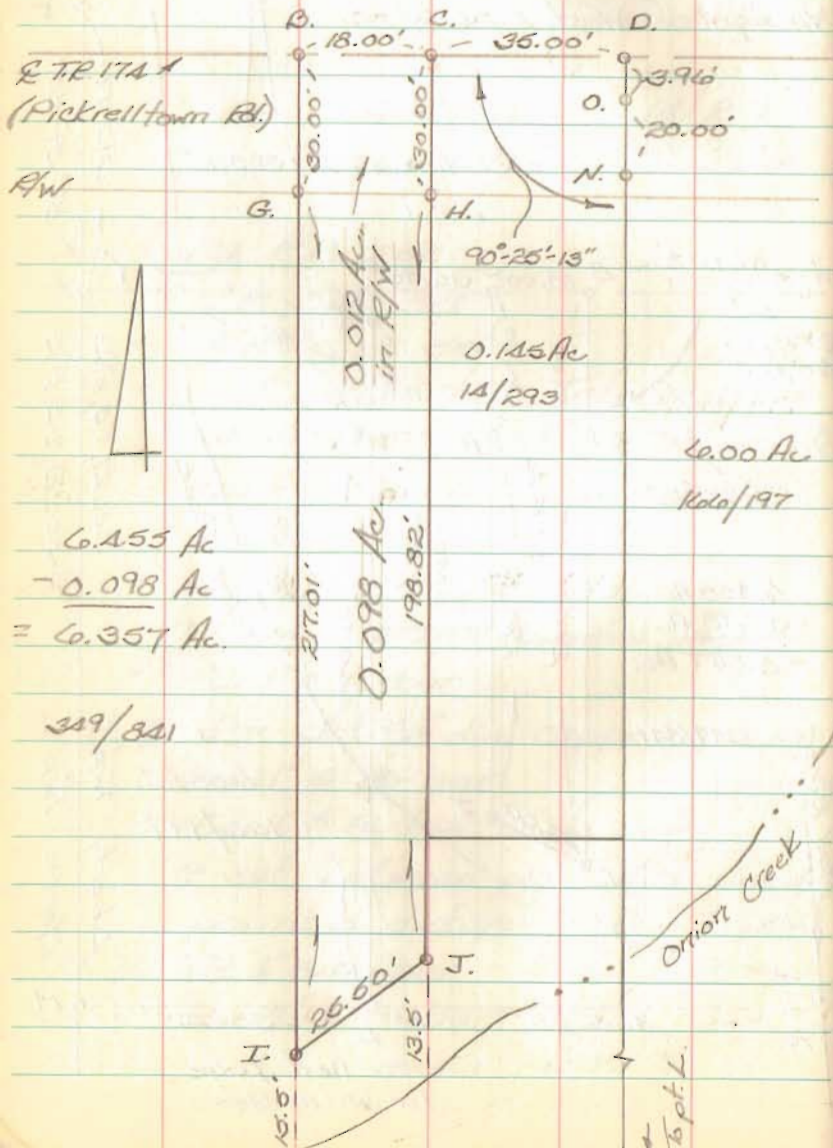 B. C. D.
18.00' 35.00'
℄ T.R. 174
(Pickrelltown Rd.)
3.96'
O.
20.00'
30.00' 30.00'
N.
R/W
G. H.
90°-25'-13"
0.012 Ac.
in R/W
0.145 Ac
14/293
6.00 Ac
166/197
6.455 Ac
- 0.098 Ac
= 6.357 Ac.
217.01'
0.098 Ac.
198.82'
349/841
Onion Creek
J.
25.60'
13.5'
I.
15.5'
To pt. L.